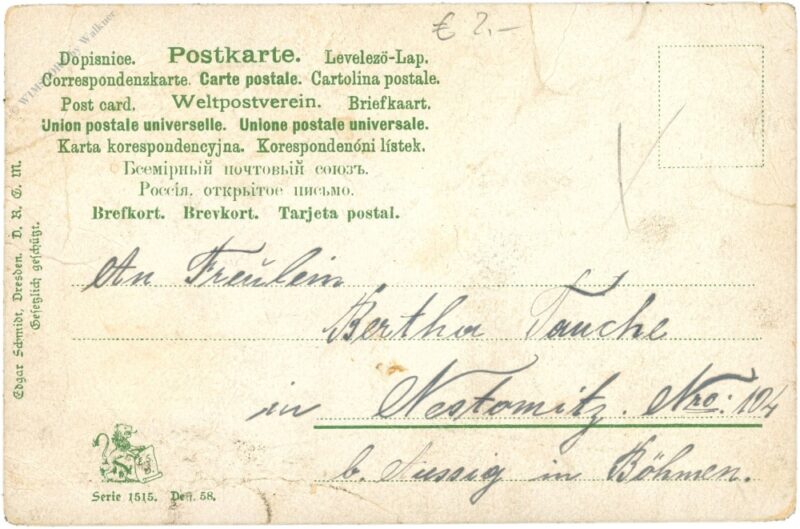 € 2.-
Dopisnice. Postkarte. Levelező-Lap.
Correspondenzkarte. Carte postale. Cartolina postale.
Post card. Weltpostverein. Briefkaart.
Union postale universelle. Unione postale universale.
Karta korespondencyjna. Korespondenóni lístek.
Всемірный почтовый союзъ.
Россія. открытое письмо.
Brefkort. Brevkort. Tarjeta postal.
Edgar Schmidt, Dresden. D. R. G. M.
Gesetzlich geschützt.
An Freülein
Bertha Tauche
in Nestomitz. Nro: 104
b. Aussig in Böhmen.
Serie 1515. Des. 58.